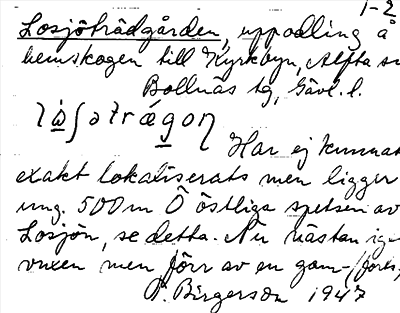 1-2
Losjöträdgården, uppodling å
hemskogen till Kyrkbyn, Alfta sn
Bollnäs tg, Gävl. l.
Har ej kunnat
exakt lokaliserats men ligger
ung. 500 m Ö östliga spetsen av
Losjön, se detta. Nu nästan ige
vuxen men förr av en gam-
P. Birgerson 1947